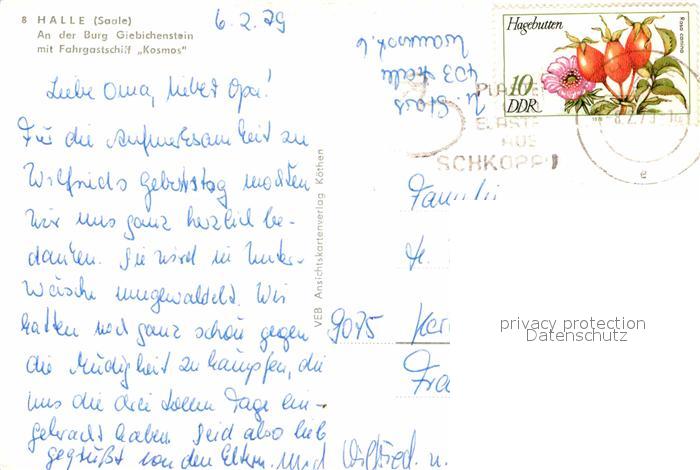 8 HALLE (Saale)
An der Burg Giebichenstein
mit Fahrgastschiff „Kosmos“
6.2.79
Liebe Oma, lieber Opa!
Für die Aufmerksamkeit zu
Wilfrieds Geburtstag möchten
wir uns ganz herzlich be-
danken. Sie wird in Unter-
wäsche umgewandelt. Wir
hatten noch ganz schön gegen
die Müdigkeit zu kämpfen, die
uns die drei tollen Tage ein-
gebracht haben. Seid also lieb
gegrüßt von den Eltern. und Wilfried. u.
VEB Ansichtskartenverlag Köthen
403 Halle
Hagebutten
Rosa canina
10
DDR
PLASTE
E ASTE
AUS
SCHKOPAU
e
Famili
9075
privacy protection
Datenschutz